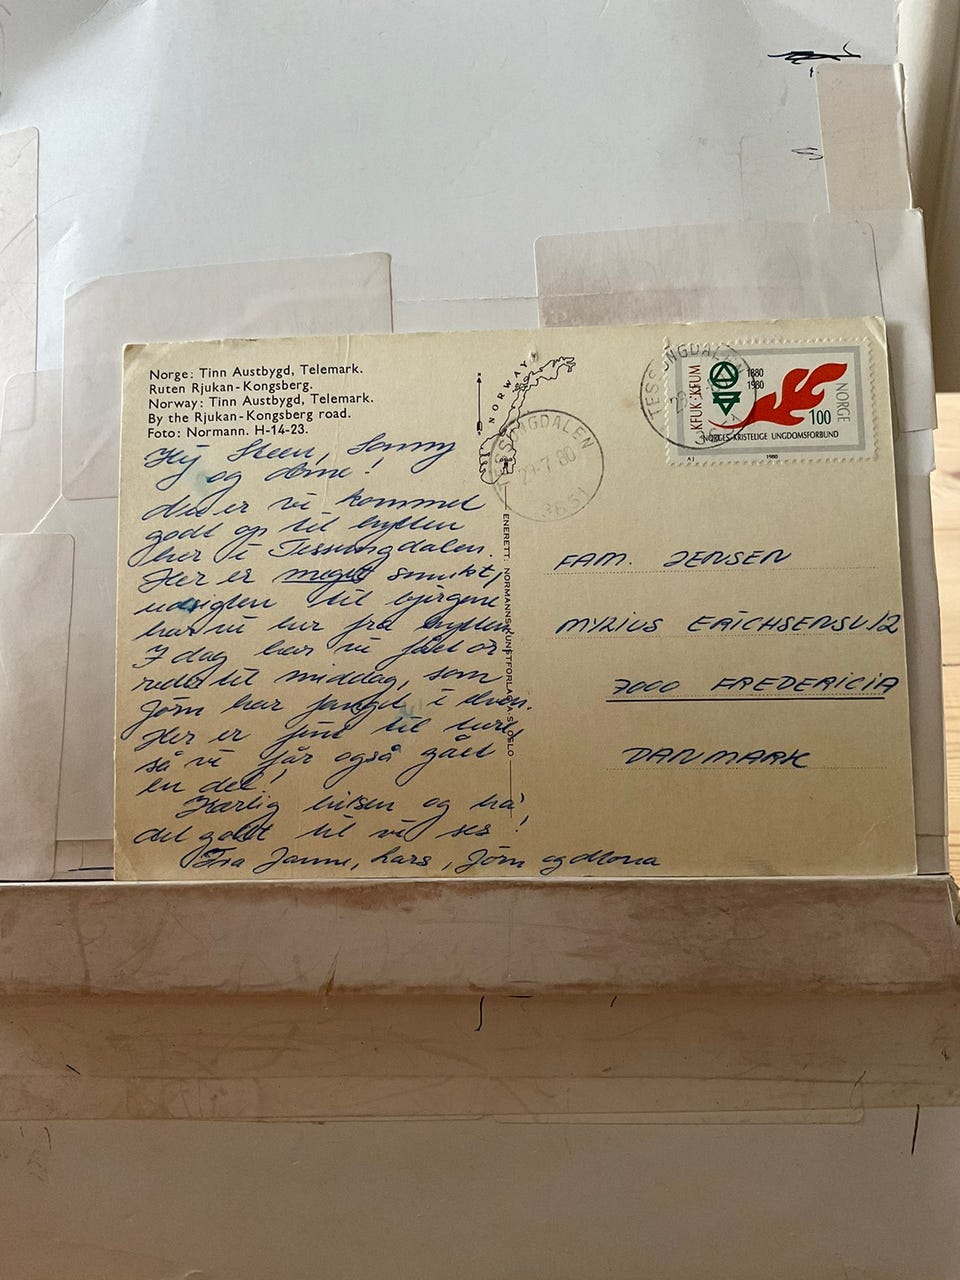 Norge: Tinn Austbygd, Telemark.
Ruten Rjukan-Kongsberg.
Norway: Tinn Austbygd, Telemark.
By the Rjukan-Kongsberg road.
Foto: Normann. H-14-23.
Hej Steen, Sonny
og dine!
Nu er vi kommet
godt op til hytten
her i Tessungdalen.
Her er meget smukt,
udsigten til bjergene
har vi her fra hytten
I dag har vi fået ør-
reder til middag, som
Jørn har fanget i elven.
Her er fint til ture,
så vi får også gået
en del!
Kærlig hilsen og ha'
det godt til vi ses!
Fra Janne, Lars, Jørn og Mona
NORWAY
TESSUNGDALEN
29-7-80
3651
ENERETT: NORMANNS KUNSTFORLAG A/S OSLO
TESSUNGDALEN
KFUK-KFUM
1880
1980
100
NORGE
NORGES KRISTELIGE UNGDOMSFORBUND
AJ
1980
FAM. JENSEN
MYLIUS ERICHSENSV.12
7000 FREDERICIA
DANMARK